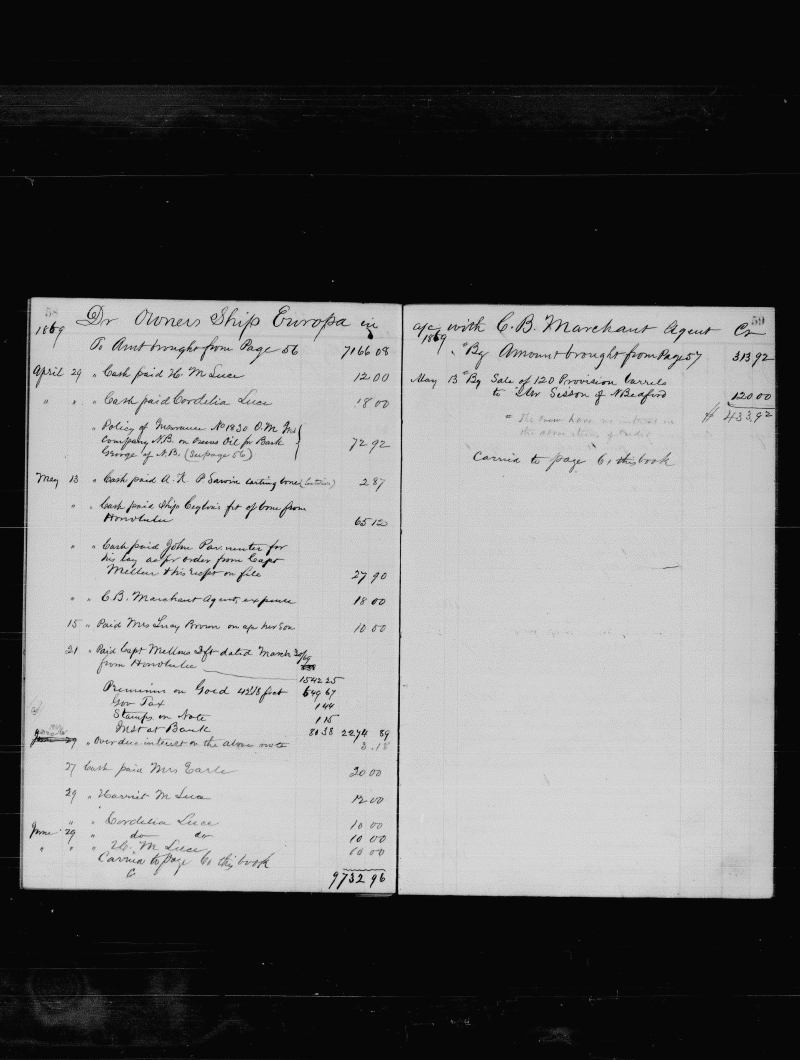 58
Dr Owners Ship Europa in
1869
To Amt brought from Page 56 7166 08
April 29 " Cash paid H. M Luce 12 00
" " " Cash paid Cordelia Luce 18 00
" Policy of Insurance No 1830 O. M. Ins
Company N.B. on Oil for Bark
George of N.B. (See page 56) 72 92
May 13 " Cash paid A. K. P carting bone 2 87
" " Cash paid Ship Ceylon's frt of bone from
Honolulu 65 12
" " Cash paid John for
his lay as pr order from Capt
Mellen & his on file 27 90
" " C. B. Marchant Agent, expense 18 00
15 " Paid Mrs Lucy Brown on a/c her Son 10 00
21 " Paid Capt Mellens Dft dated March
from Honolulu
1542 25
Premium on Gold pct 649 67
Gov Tax 1 44
Stamps on Note 1 15
Inst at Bank 80 38 2274 89
" Over due interest on the above note 2.18
27 Cash paid Mrs Earle 20 00
29 " Harriet M Luce 12 00
" " Cordelia Luce 10 00
June 29 " do do 10 00
" " " H. M Luce 10 00
Carried to page 60 this book
9732 96
59
a/c with C. B. Marchant Agent Cr
1869
" By Amount brought from Page 57 313 92
May 13 " By Sale of 120 Provision barrels
to Sisson of N Bedford 120 00
$ 433.92
Carried to page 61 this book